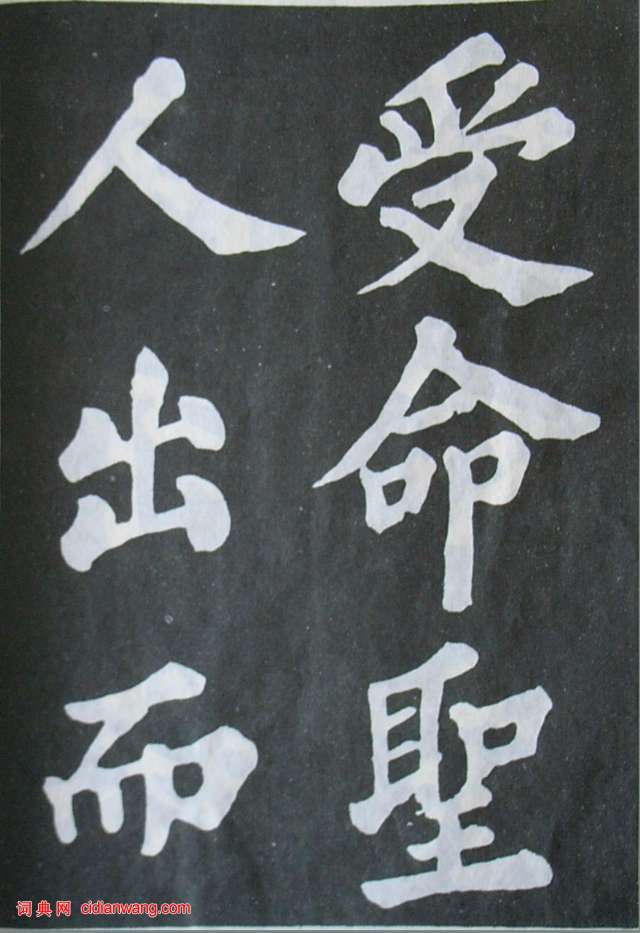 受命聖
人出而
词典网 cidianwang.com